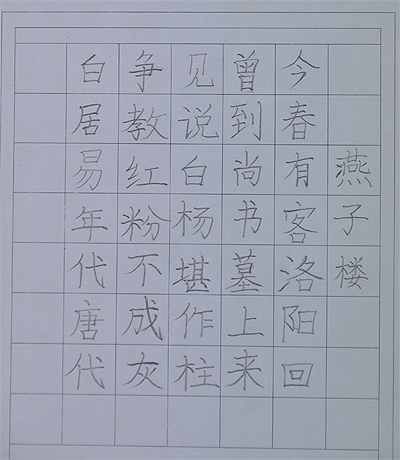 燕子楼
今春有客洛阳回
曾到尚书墓上来
见说白杨堪作柱
争教红粉不成灰
白居易年代唐代